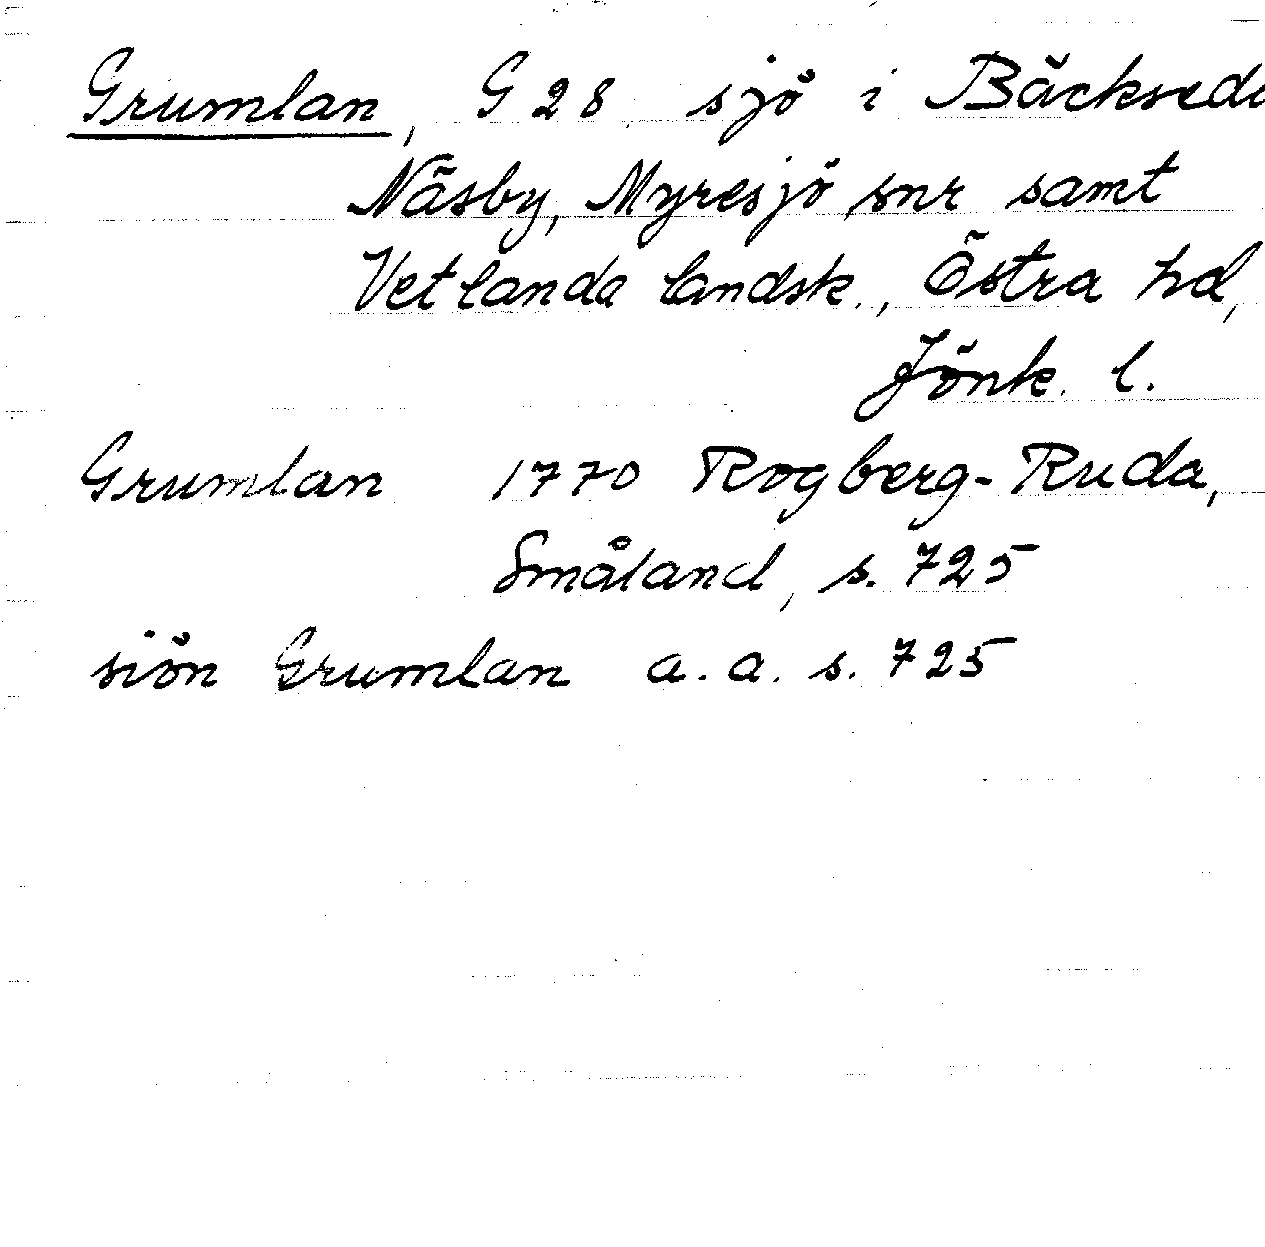 Grumlan, G 28 sjö i Bäckseda
Näsby, Myresjö snr samt
Vetlanda landsk., Östra hd,
Jönk. l.
Grumlan 1770 Rogberg-Ruda,
Småland, s. 725
siön Grumlan a. a. s. 725